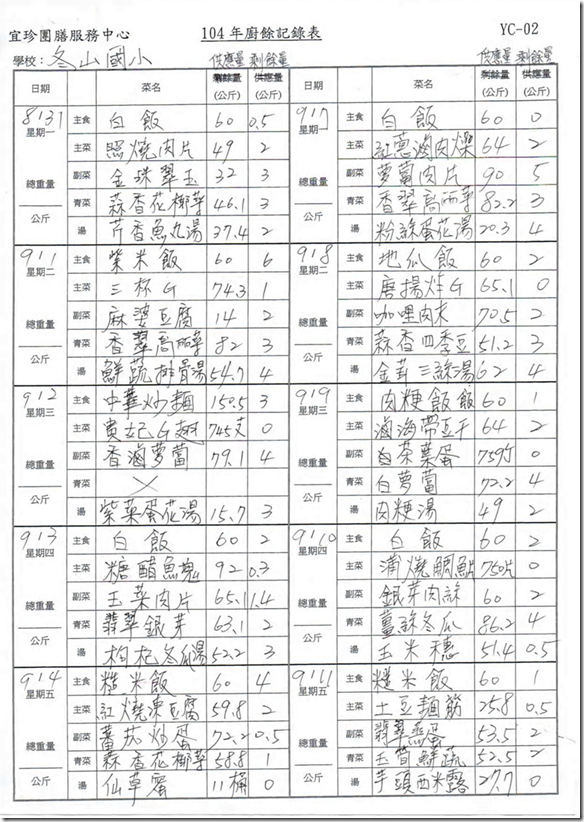 宜珍團膳服務中心 104年廚餘記錄表 YC-02
學校: 冬山國小 供應量 剩餘量 供應量 剩餘量
日期 菜名 剩餘量(公斤) 供應量(公斤) 日期 菜名 剩餘量(公斤) 供應量(公斤)
8/31 星期一 總重量 公斤
主食 白飯 60 0.5
主菜 照燒肉片 49 2
副菜 金珠翠玉 32 3
青菜 蒜香花椰菜 46.1 3
湯 芹香魚丸湯 37.4 2
9/1 星期二 總重量 公斤
主食 紫米飯 60 6
主菜 三杯G 74.3 1
副菜 麻婆豆腐 14 2
青菜 香翠高麗菜 82 3
湯 鮮蔬排骨湯 54.7 4
9/2 星期三 總重量 公斤
主食 中華炒麵 150.5 3
主菜 貴妃G翅 745支 0
副菜 香滷蘿蔔 79.1 4
青菜 ×
湯 紫菜蛋花湯 15.7 3
9/3 星期四 總重量 公斤
主食 白飯 60 2
主菜 糖醋魚塊 92 0.3
副菜 玉菜肉片 65.1 1.4
青菜 翡翠銀芽 63.1 2
湯 枸杞冬瓜湯 52.2 3
9/4 星期五 總重量 公斤
主食 糙米飯 60 4
主菜 紅燒凍豆腐 59.8 2
副菜 蕃茄炒蛋 72.2 0.5
青菜 蒜香花椰菜 58.8 1
湯 仙草蜜 11桶 0
9/7 星期一 總重量 公斤
主食 白飯 60 0
主菜 紅蔥滷肉燥 64 2
副菜 蘿蔔肉片 90 5
青菜 香翠高麗菜 82.2 3
湯 粉絲蛋花湯 20.3 4
9/8 星期二 總重量 公斤
主食 地瓜飯 60 2
主菜 唐揚炸G 65.1 0
副菜 咖哩肉末 70.5 2
青菜 蒜香四季豆 51.2 3
湯 金茸三絲湯 62 4
9/9 星期三 總重量 公斤
主食 肉粳飯飯 60 1
主菜 滷海帶豆干 64 2
副菜 茶葉蛋 759 0
青菜 白蘿蔔 72.2 4
湯 肉粳湯 49 2
9/10 星期四 總重量 公斤
主食 白飯 60 2
主菜 蒲燒鯛魚 750片 0
副菜 銀芽肉絲 60 2
青菜 薑絲冬瓜 86.2 4
湯 玉米穗 51.4 0.5
9/11 星期五 總重量 公斤
主食 糙米飯 60 1
主菜 土豆麵筋 25.8 0.5
副菜 翡翠蒸蛋 53.5 2
青菜 玉筍鮮蔬 52.5 2
湯 芋頭西米露 27.7 0